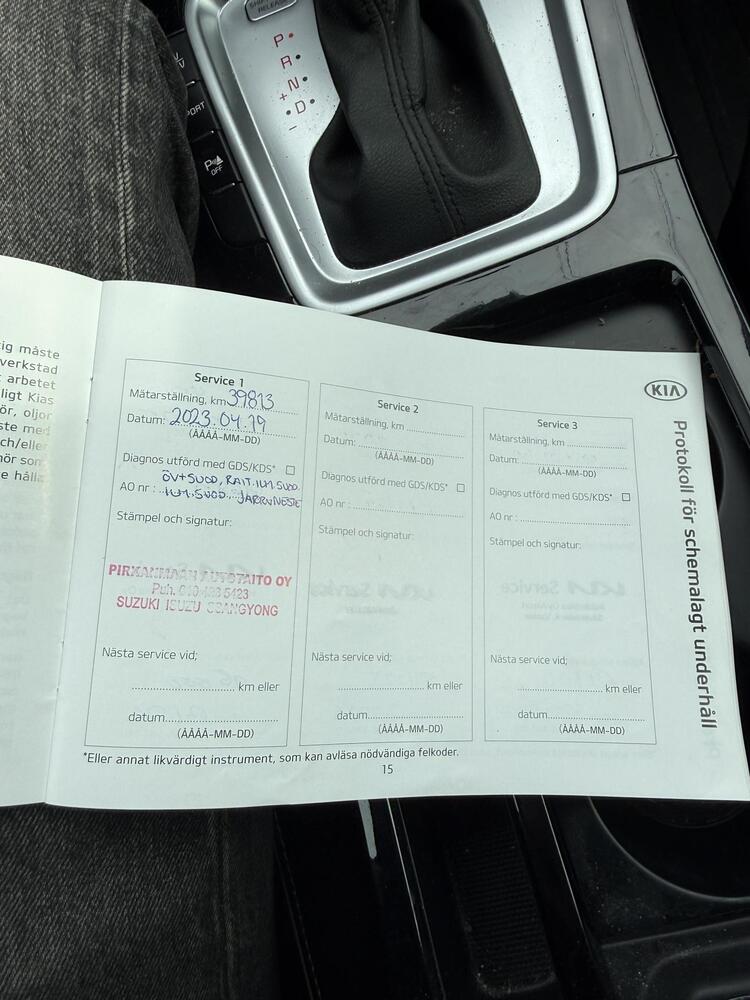 SHIFT LOCK
RELEASE
P
R
N
+
D
-
PORT
P
OFF
tig måste
verkstad
arbetet
ligt Kias
ör, oljor
ste med
ch/eller
hör som
e hålla
KIA
Protokoll för schemalagt underhåll
Service 1
Mätarställning, km 39813
Datum: 2023.04.19
(ÅÅÅÅ-MM-DD)
Diagnos utförd med GDS/KDS*
ÖV+SUOD, RAIT.ILM.SUOD.
AO nr : ILM.SUOD. JARRUNESTE
Stämpel och signatur:
PIRKANMAAN AUTOTAITO OY
Puh. 010 423 5423
SUZUKI ISUZU SSANGYONG
Nästa service vid;
km eller
datum
(ÅÅÅÅ-MM-DD)
Service 2
Mätarställning, km
Datum:
(ÅÅÅÅ-MM-DD)
Diagnos utförd med GDS/KDS*
AO nr :
Stämpel och signatur:
Nästa service vid;
km eller
datum
(ÅÅÅÅ-MM-DD)
Service 3
Mätarställning, km
Datum:
(ÅÅÅÅ-MM-DD)
Diagnos utförd med GDS/KDS*
AO nr :
Stämpel och signatur:
Nästa service vid;
km eller
datum
(ÅÅÅÅ-MM-DD)
*Eller annat likvärdigt instrument, som kan avläsa nödvändiga felkoder.
15